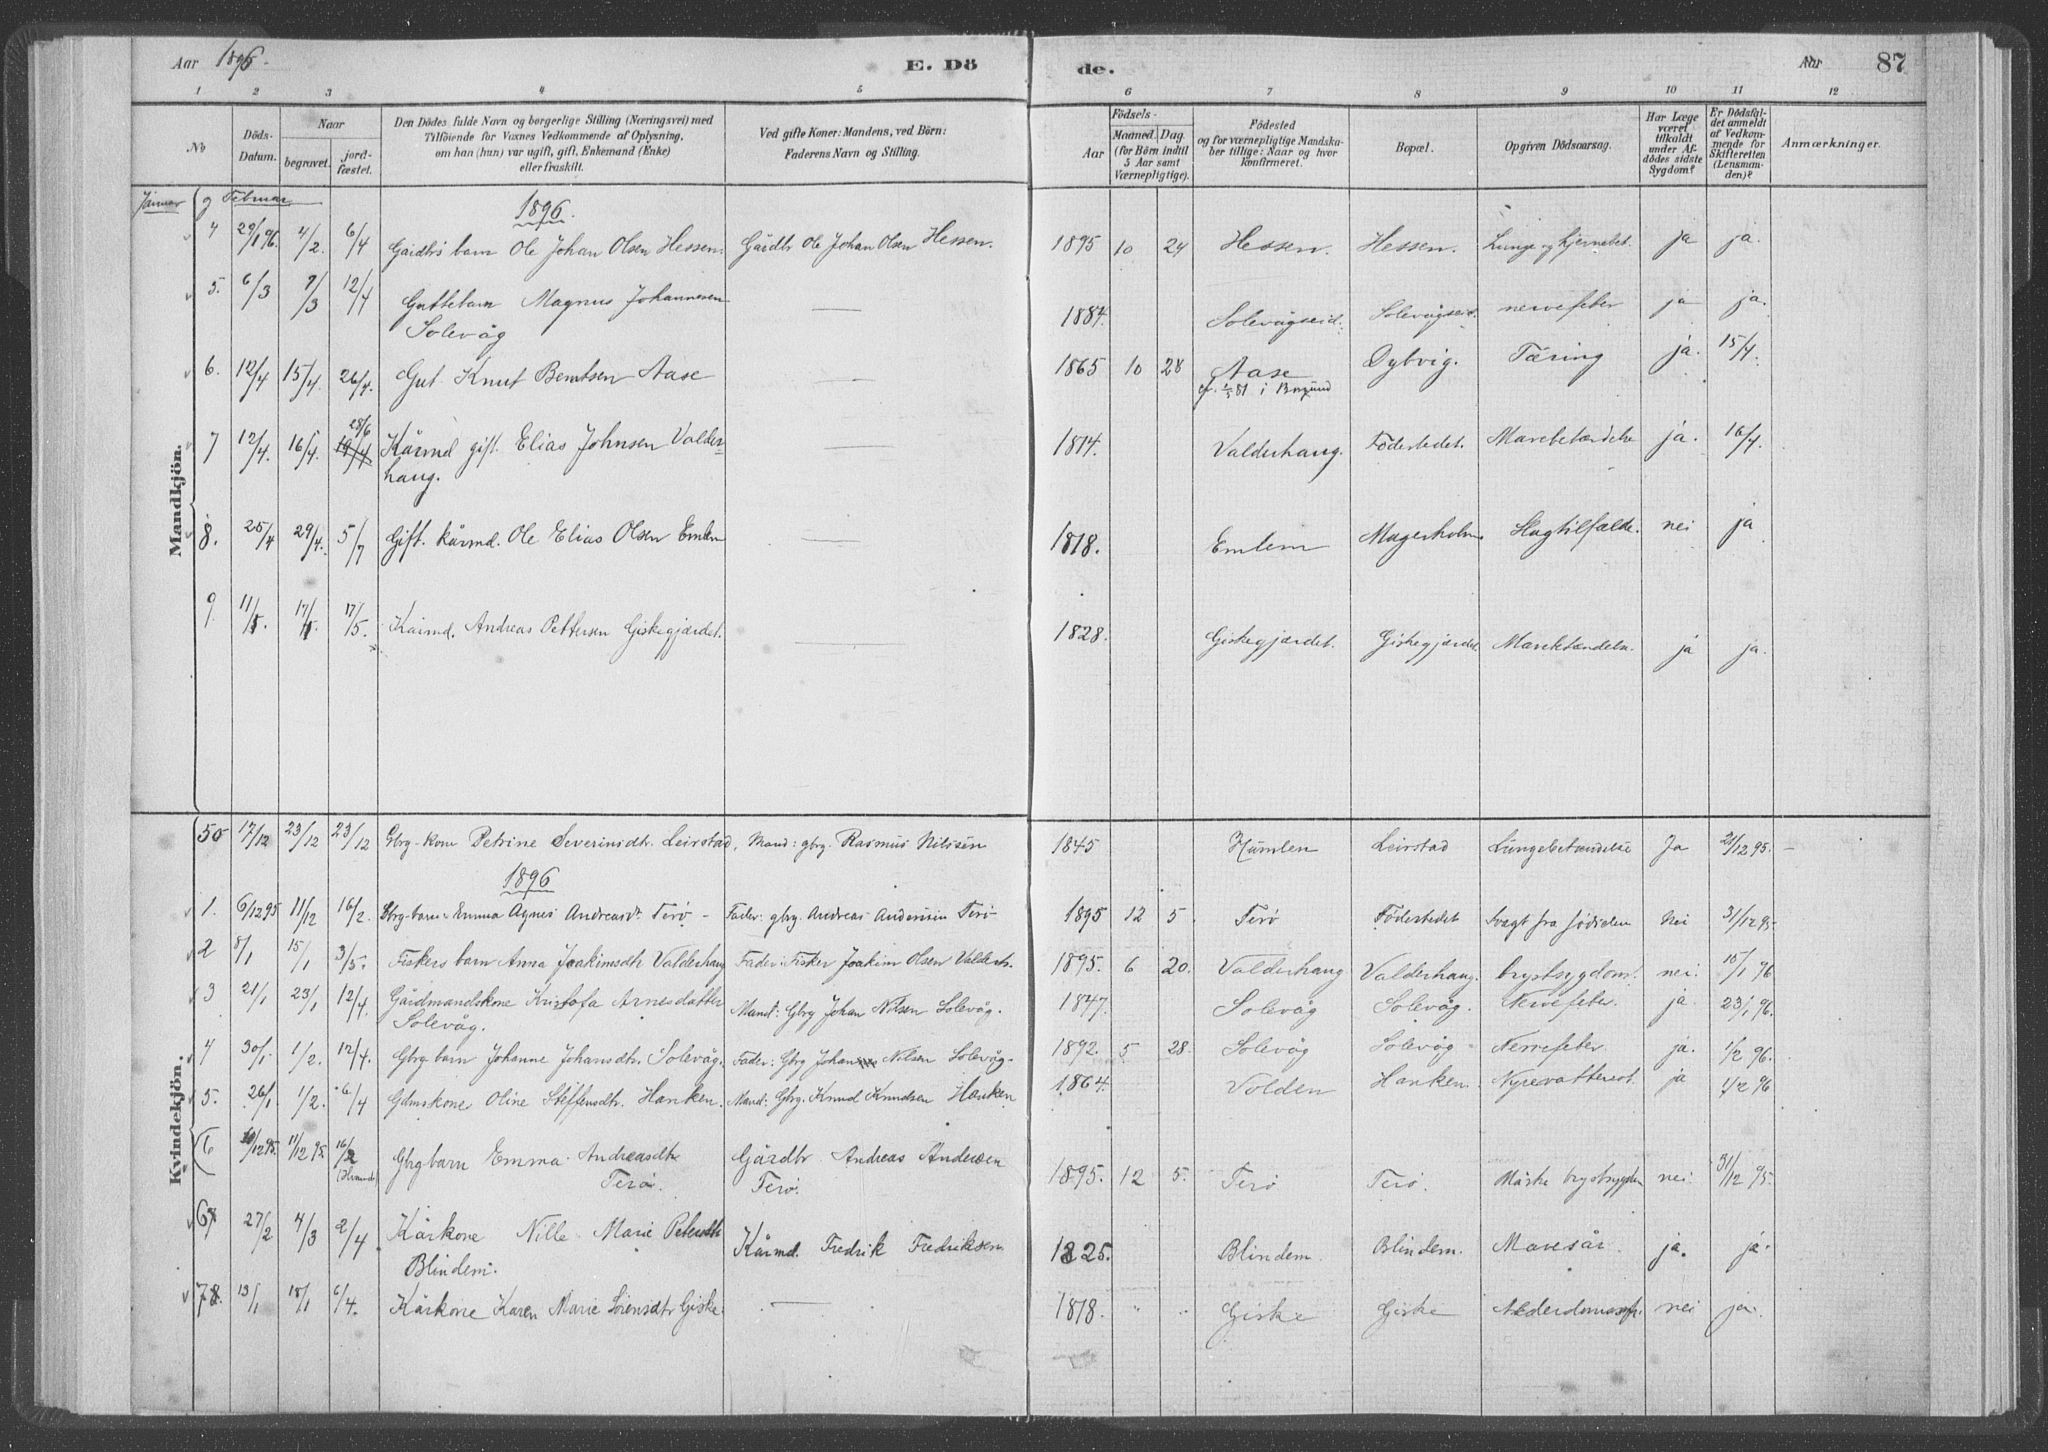 Aar 1896. E. Döde. Aar 87
1 2 3 4 5 6 7 8 9 10 11 12
No Döds-Datum. Naar begravet. jord-fæstet. Den Dödes fulde Navn og borgerlige Stilling (Næringsvei) med Tilföiende for Voxnes Vedkommende af Oplysning, om han (hun) var ugift, gift, Enkemand (Enke) eller fraskilt. Ved gifte Koner: Mandens, ved Börn: Faderens Navn og Stilling. Födsels- Aar Maaned. Dag. (for Börn indtil 5 Aar samt Værnepligtige). Födested og for værnepligtige Mandskaber tillige: Naar og hvor konfirmeret. Bopæl. Opgiven Dödsaarsag. Har Læge været tilkaldt under Afdödes sidste Sygdom? Er Dödsfaldet anmeldt af Vedkommende for Skifteretten (Lensmanden)? Anmærkninger.
Januar og Februar
1896.
Mandkjön.
4 29/1 96. 4/2. 6/4 Gårdbrs barn Ole Johan Olsen Hessen. Gårdbr Ole Johan Olsen Hessen. 1895 10 24 Hessen. Hessen. Lunge og hjernebet. ja ja.
5. 6/3 9/3 12/4 Guttebarn Magnus Johannesen — 1884. Solevågseid. Solevågseid. nervefeber ja ja.
Solevåg
6. 12/4 15/4. 26/4. Gut Knut Berntsen Aase — 1865 10 28 Aase Dybvig. Tæring ja. 15/4.
i Borgund
28/6
7 12/4. 16/4. 19/4 Kårmd gift. Elias Johnsen Valder- 1814. Valderhaug. Födestedet. Mavebetændelse ja. 16/4.
haug.
8. 25/4 29/4. 5/7 Gift. kårmd. Ole Elias Olsen Emlem — 1818. Emlem Magerholm Slagtilfælde. nei ja
9. 11/5. 17/5. 17/5. Kårmd. Andreas Pettersen Giskegjærdet. — 1828. Giskegjærdet. Giskegjærdet. Mavebetændelse. ja ja.
Kvindekjön.
50 17/12 23/12 23/12 Gbrg-kone Petrine Severinsdtr. Leirstad, Mand: gbrg. Rasmus Nilsen 1845 Humlen Leirstad Lungebetændelse Ja 21/12 95. —
1896
1. 6/12 95 11/12 16/2. Gbrg-barn: Emma Agnes Andreasdr. Terö - Fader: gbrg. Andreas Andersen Terö- 1895 12 5. Terö Födestedet Svagt fra födselen Nei 31/12 95.
2 8/1 15/1 3/5. Fiskers barn Anna Joakimsdtr Valderhaug Fader: Fisker Joakim Olsen Valderh. 1895. 6 20. Valderhaug Valderhaug. brystsygdom. nei. 15/1 96
3 21/1 23/1 12/4. Gårdmandskone Kristofa Arnesdatter Mand: Gbrg Johan Nilsen Solevåg. 1847. Solevåg Solevåg. Nervefeber. ja. 23/1 96.
Solevåg.
4 30/1. 1/2. 12/4. Gbrg barn Johanne Johansdtr. Solevåg. Fader: Gbrg Johan Nilsen Solevåg- 1892. 5 28. Solevåg Solevåg - Nervefeber ja. 1/2 96.
5. 26/1 1/2. 6/4 Gdmskone Oline Steffensdtr. Hanken. Mand: Gbrg. Knud Knudsen Hanken 1864. Volden Hanken. Nyrevattersot. ja 1/2 96
6 10/12 95. 11/12 95. 16/2 Gbrg barn Emma Andreasdtr Gårdbr Andreas Andersen 1895. 12 5. Terö Terö. Måske brystsygdom nei. 31/12 95.
Terö. Terö.
6 27/2 4/3 2/4 Kårkone Nille Marie Petersdtr Kårmd. Fredrik Fredriksen 1825. Blindem. Blindem. Mavesår. ja. ja.
Blindem.
7 13/1 18/1 6/4. Kårkone Karen Marie Sörensdtr Giske — 1818. " " Giske Giske Alderdomssv. nei ja.